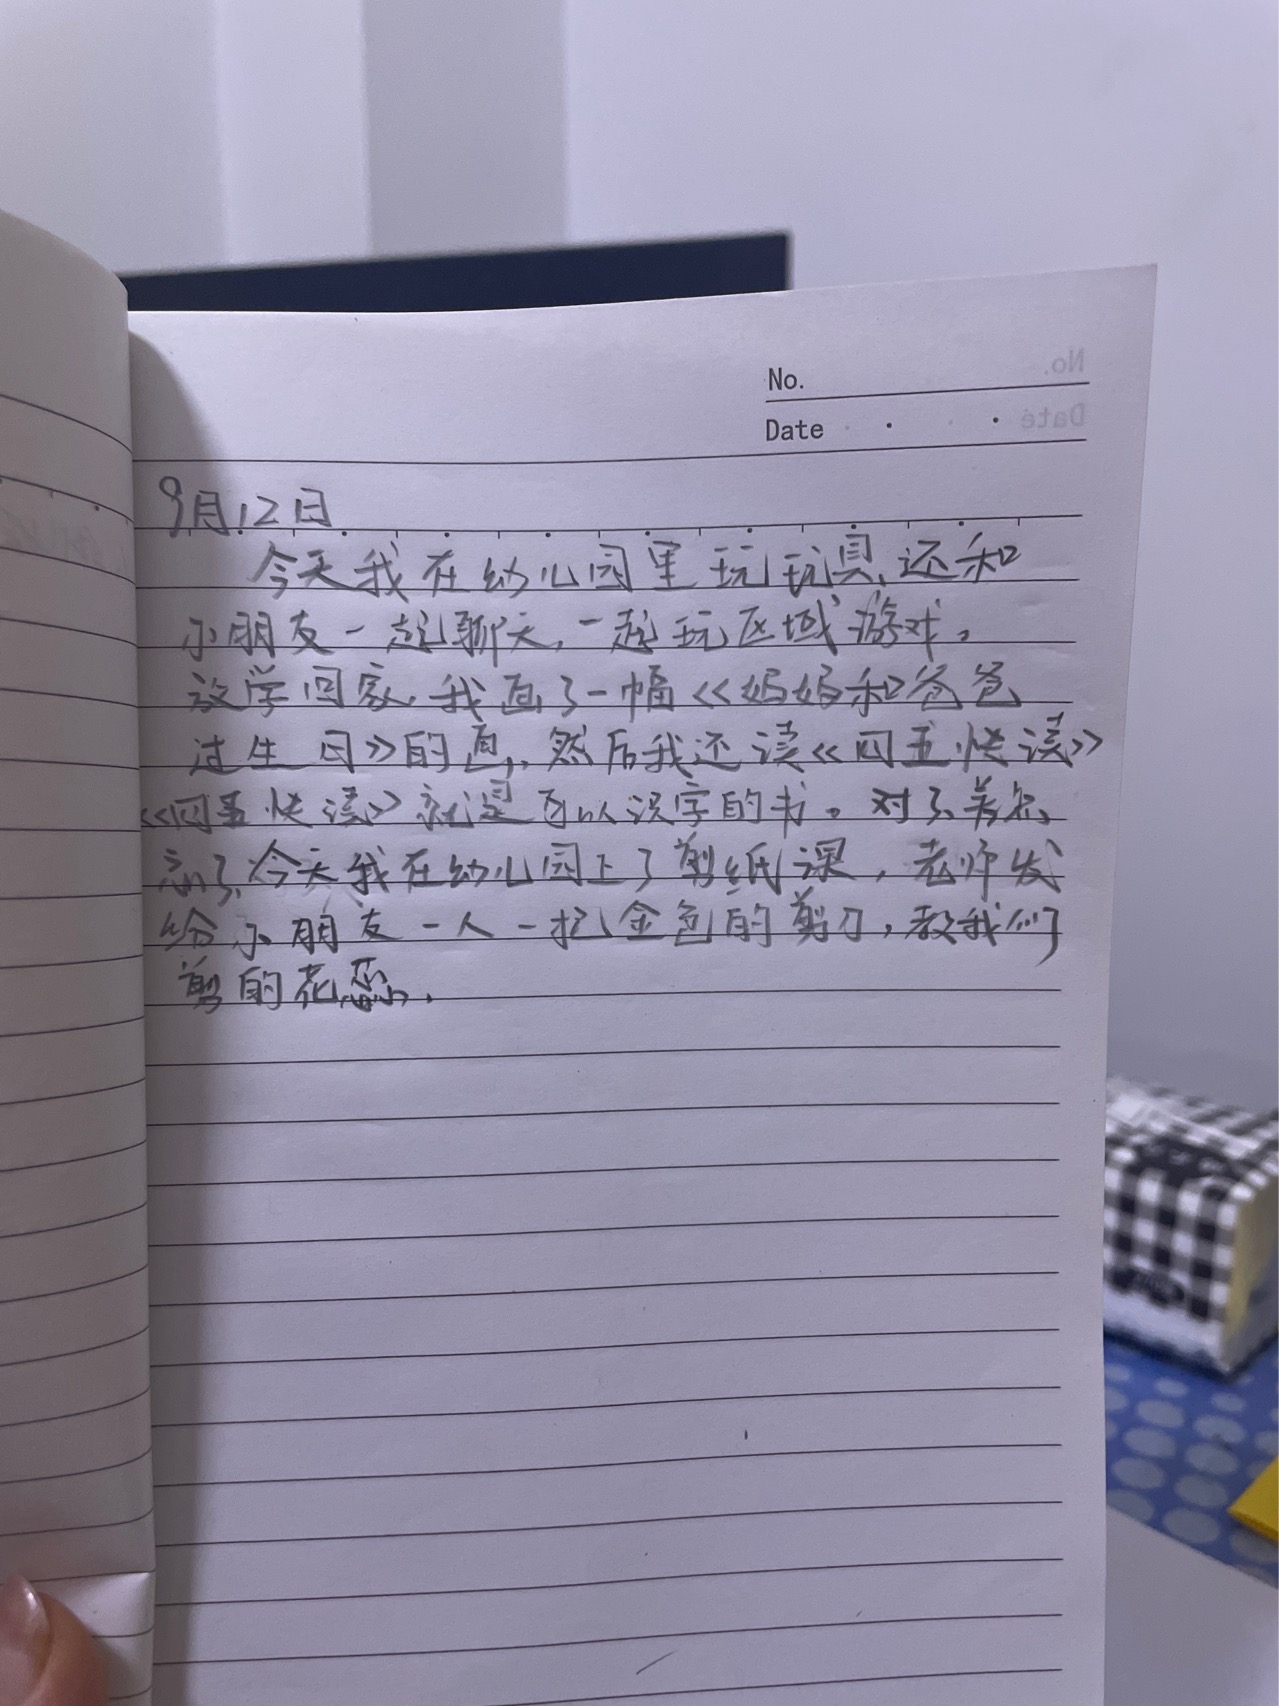 No.
Date
9月12日
今天我在幼儿园里玩玩具,还和
小朋友一起聊天,一起玩区域游戏。
放学回家,我画了一幅《妈妈和爸爸
过生日》的画,然后我还读《四五快读》
《四五快读》就是可以识字的书。对了,差点
忘了,今天我在幼儿园上了剪纸课,老师发
给小朋友一人一把金色的剪刀,教我们
剪的花蕊.